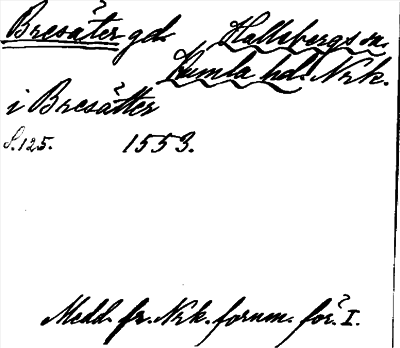 Bresäter gd. Hallsbergs sn.
Kumla hd. Nrk.
i Bresätter
S. 125. 1553.
Medd. fr. Nrk. fornm. för. I.